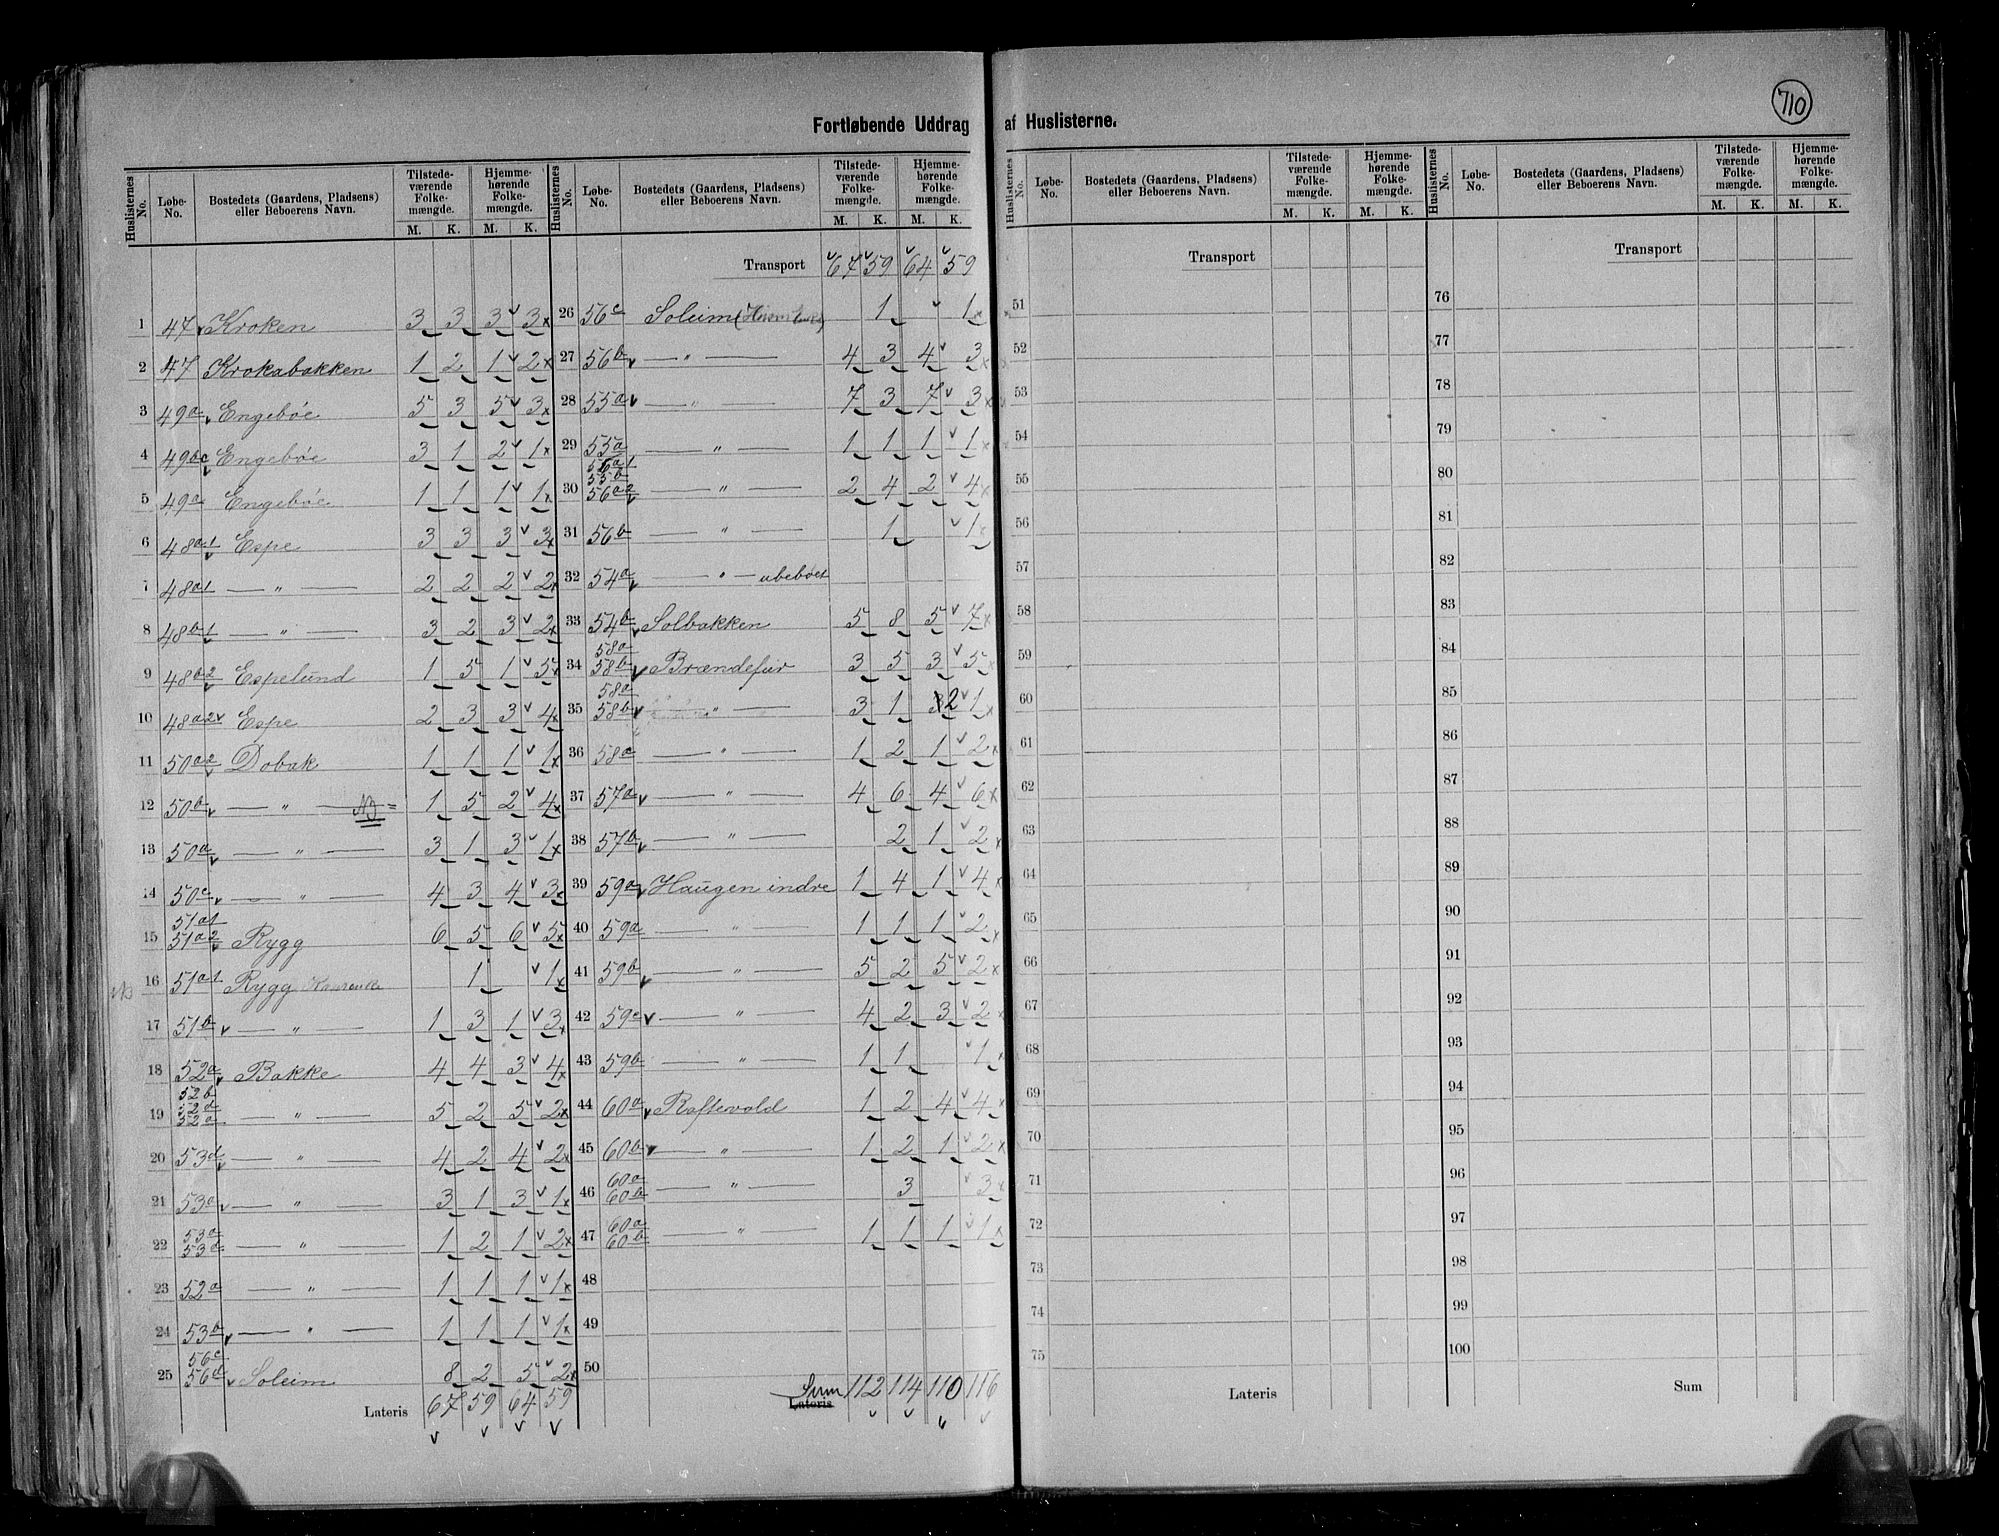 710
Fortløbende Uddrag af Huslisterne.
Huslisternes No. | Løbe-No. | Bostedets (Gaardens, Pladsens) eller Beboerens Navn. | Tilstedeværende Folkemængde. M. K. | Hjemmehørende Folkemængde. M. K.
1 47 Kroken 3 3 3 3
2 47 Krokabakken 1 2 1 2
3 49a Engebøe 5 3 5 3
4 49bc Engebøe 3 1 2 1
5 49a Engebøe 1 1 1 1
6 48a1 Espe 3 3 3 3
7 48a1 — " — 2 2 2 2
8 48b1 — " — 3 2 3 2
9 48b2 Espelund 1 5 1 5
10 48a2 Espe 2 3 3 4
11 50a2 Dobak 1 1 1 1
12 50b — " — NB 1 5 2 4
13 50a — " — 3 1 3 1
14 50c — " — 4 3 4 3
15 51a1 51a2 Rygg 6 5 6 5
16 51a1 Rygg 1 1
17 51b — " — 1 3 1 3
18 52a Bakke 4 4 3 4
19 52b 52d 52a — " — 5 2 5 2
20 53d — " — 4 2 4 2
21 53a — " — 3 1 3 1
22 53a 53d — " — 1 2 1 2
23 52a — " — 1 1 1 1
24 53b — " — 1 1 1 1
25 56c 56d Soleim 8 2 5 2
Lateris 67 59 64 59
Huslisternes No. | Løbe-No. | Bostedets (Gaardens, Pladsens) eller Beboerens Navn. | Tilstedeværende Folkemængde. M. K. | Hjemmehørende Folkemængde. M. K.
Transport 67 59 64 59
26 56c Soleim 1 1
27 56b — " — 4 3 4 3
28 55a — " — 7 3 7 3
29 55a — " — 1 1 1 1
30 56a1 55b 56a2 — " — 2 4 2 4
31 56b — " — 1 1
32 54a — " — ubeboet
33 54b Solbakken 5 8 5 7
34 58a 58b Brændefur 3 5 3 5
35 58a 58b — " — 3 1 2 1
36 58c — " — 1 2 1 2
37 57a — " — 4 6 4 6
38 57b — " — 2 1 2
39 59a Haugen indre 1 4 1 4
40 59a — " — 1 1 1 2
41 59b — " — 5 2 5 2
42 59c — " — 4 2 3 2
43 59b — " — 1 1 1
44 60a Raftevold 1 2 4 4
45 60b — " — 1 2 1 2
46 60a 60b — " — 3 3
47 60a 60b — " — 1 1 1 1
48
49
50
Sum Lateris 112 114 110 116
Huslisternes No. | Løbe-No. | Bostedets (Gaardens, Pladsens) eller Beboerens Navn. | Tilstedeværende Folkemængde. M. K. | Hjemmehørende Folkemængde. M. K.
Transport
51
52
53
54
55
56
57
58
59
60
61
62
63
64
65
66
67
68
69
70
71
72
73
74
75
Lateris
Huslisternes No. | Løbe-No. | Bostedets (Gaardens, Pladsens) eller Beboerens Navn. | Tilstedeværende Folkemængde. M. K. | Hjemmehørende Folkemængde. M. K.
Transport
76
77
78
79
80
81
82
83
84
85
86
87
88
89
90
91
92
93
94
95
96
97
98
99
100
Sum